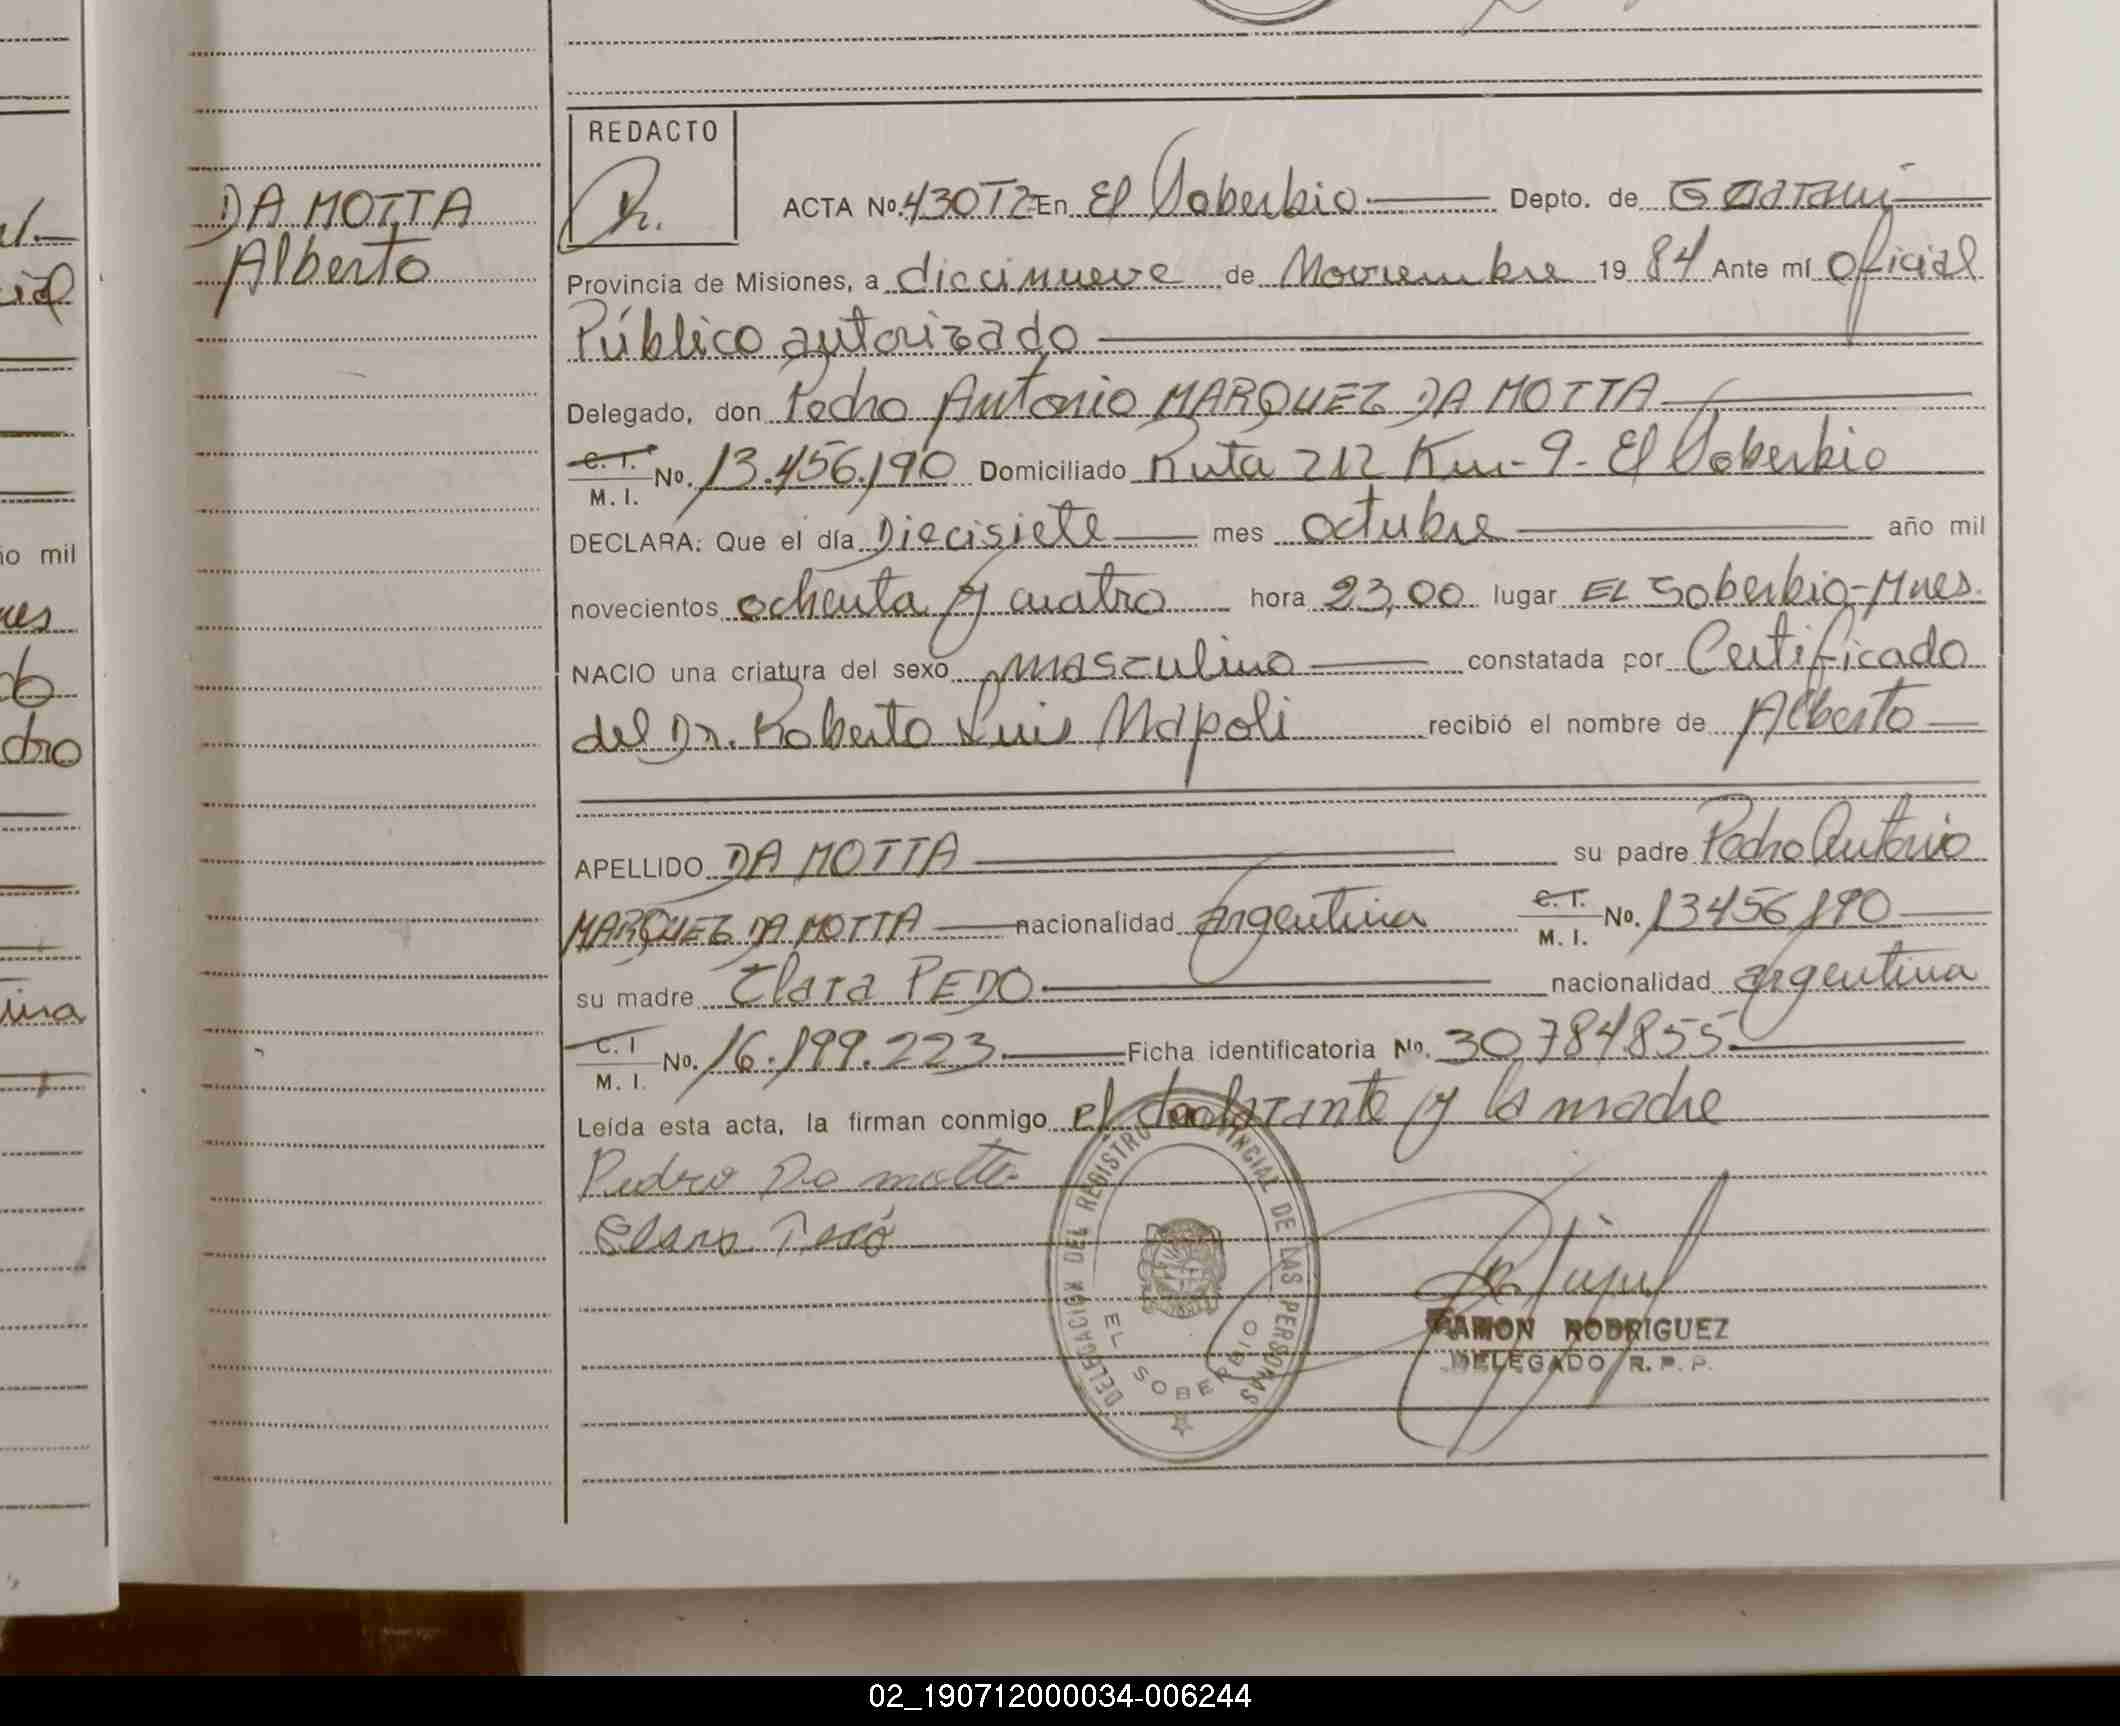 DA MOTTA
Alberto
REDACTO
ACTA No. 430T2 En El Soberbio Depto. de Guaraní
Provincia de Misiones, a diecinueve de Noviembre 1984 Ante mí Oficial
Público autorizado
Delegado, don Pedro Antonio MARQUEZ DA MOTTA
C. I. M. I. No. 13.456.190 Domiciliado Ruta 212 Km-9- El Soberbio
DECLARA: Que el día Diecisiete mes octubre año mil
novecientos ochenta y cuatro hora 23,00 lugar EL Soberbio-Mnes.
NACIO una criatura del sexo masculino constatada por Certificado
del Dr. Roberto Luis Napoli recibió el nombre de Alberto
APELLIDO DA MOTTA su padre Pedro Antonio
MARQUEZ DA MOTTA nacionalidad argentina C. I. M. I. No. 13456190
su madre Clara PEDO nacionalidad argentina
C. I M. I. No. 16.199.223 Ficha identificatoria No. 30.784.855
Leída esta acta, la firman conmigo el declarante y la madre
Pedro Da motta
Clara
DELEGACIÓN DEL REGISTRO PROVINCIAL DE LAS PERSONAS
EL SOBERBIO
RAMON RODRIGUEZ
DELEGADO R. P. P.
02_190712000034-006244